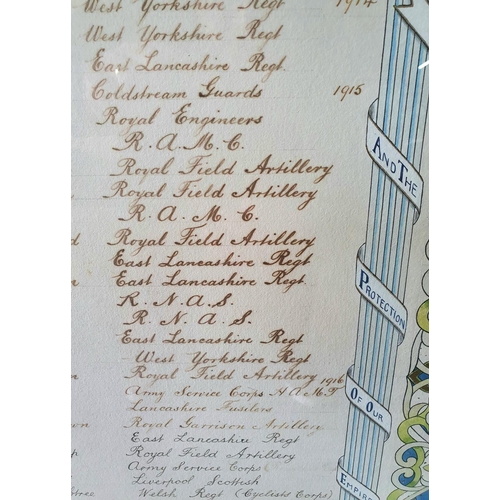 West Yorkshire Regt 1914
West Yorkshire Regt
East Lancashire Regt.
Coldstream Guards 1915
Royal Engineers
R. A. M. C.
Royal Field Artillery
Royal Field Artillery
R. A. M. C.
Royal Field Artillery
East Lancashire Regt
East Lancashire Regt.
R. N. A. S.
R. N. A. S.
East Lancashire Regt
West Yorkshire Regt
Royal Field Artillery 1916
Army Service Corps M.T
Lancashire Fusilers
Royal Garrison Artillery
East Lancashire Regt
Royal Field Artillery
Army Service Corps
Liverpool Scottish
Welsh Regt (Cyclists Corps)
AND THE
PROTECTION
OF OUR
EMPIRE